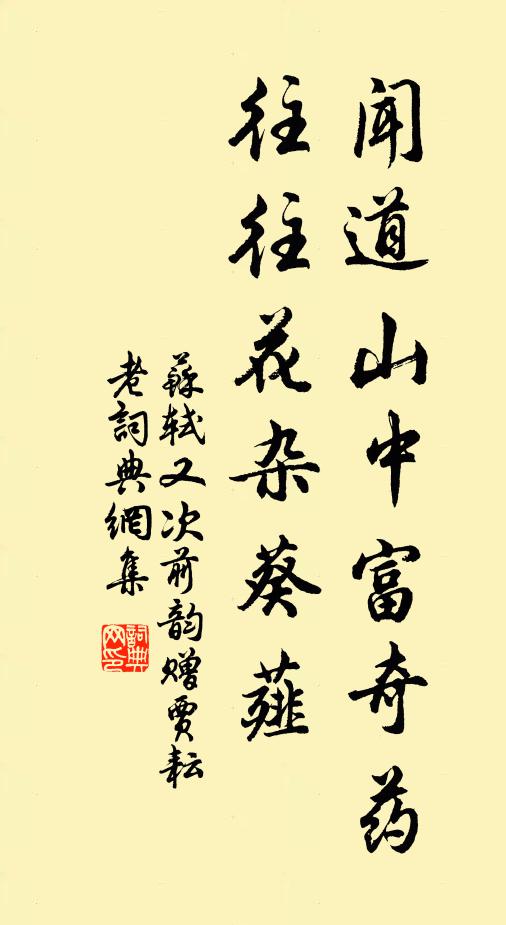 闻道山中富奇药
往往花杂葵薤
蘇轼又次前韵赠贾耘
老詞典網集
詞典网印